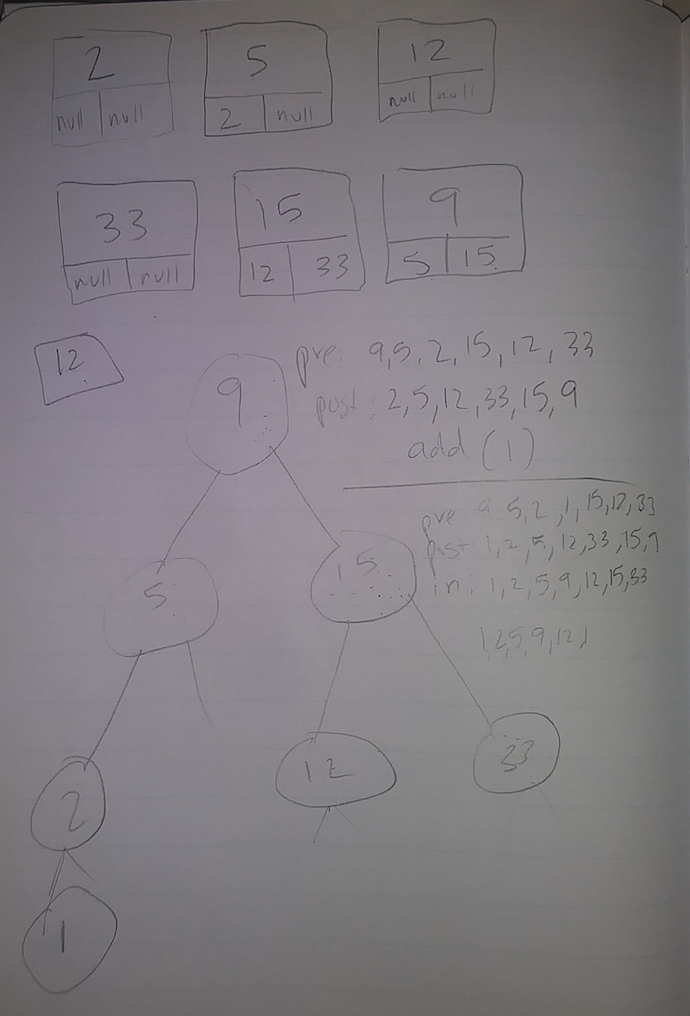 2
null null
5
2 null
12
null null
33
null null
15
12 33
9
5 15
12
pre: 9,5,2,15,12,33
post: 2,5,12,33,15,9
add (1)
pre 9,5,2,1,15,12,33
post 1,2,5,12,33,15,9
in: 1,2,5,9,12,15,33
1,2,5,9,12,
9
5
15
2
12
33
1